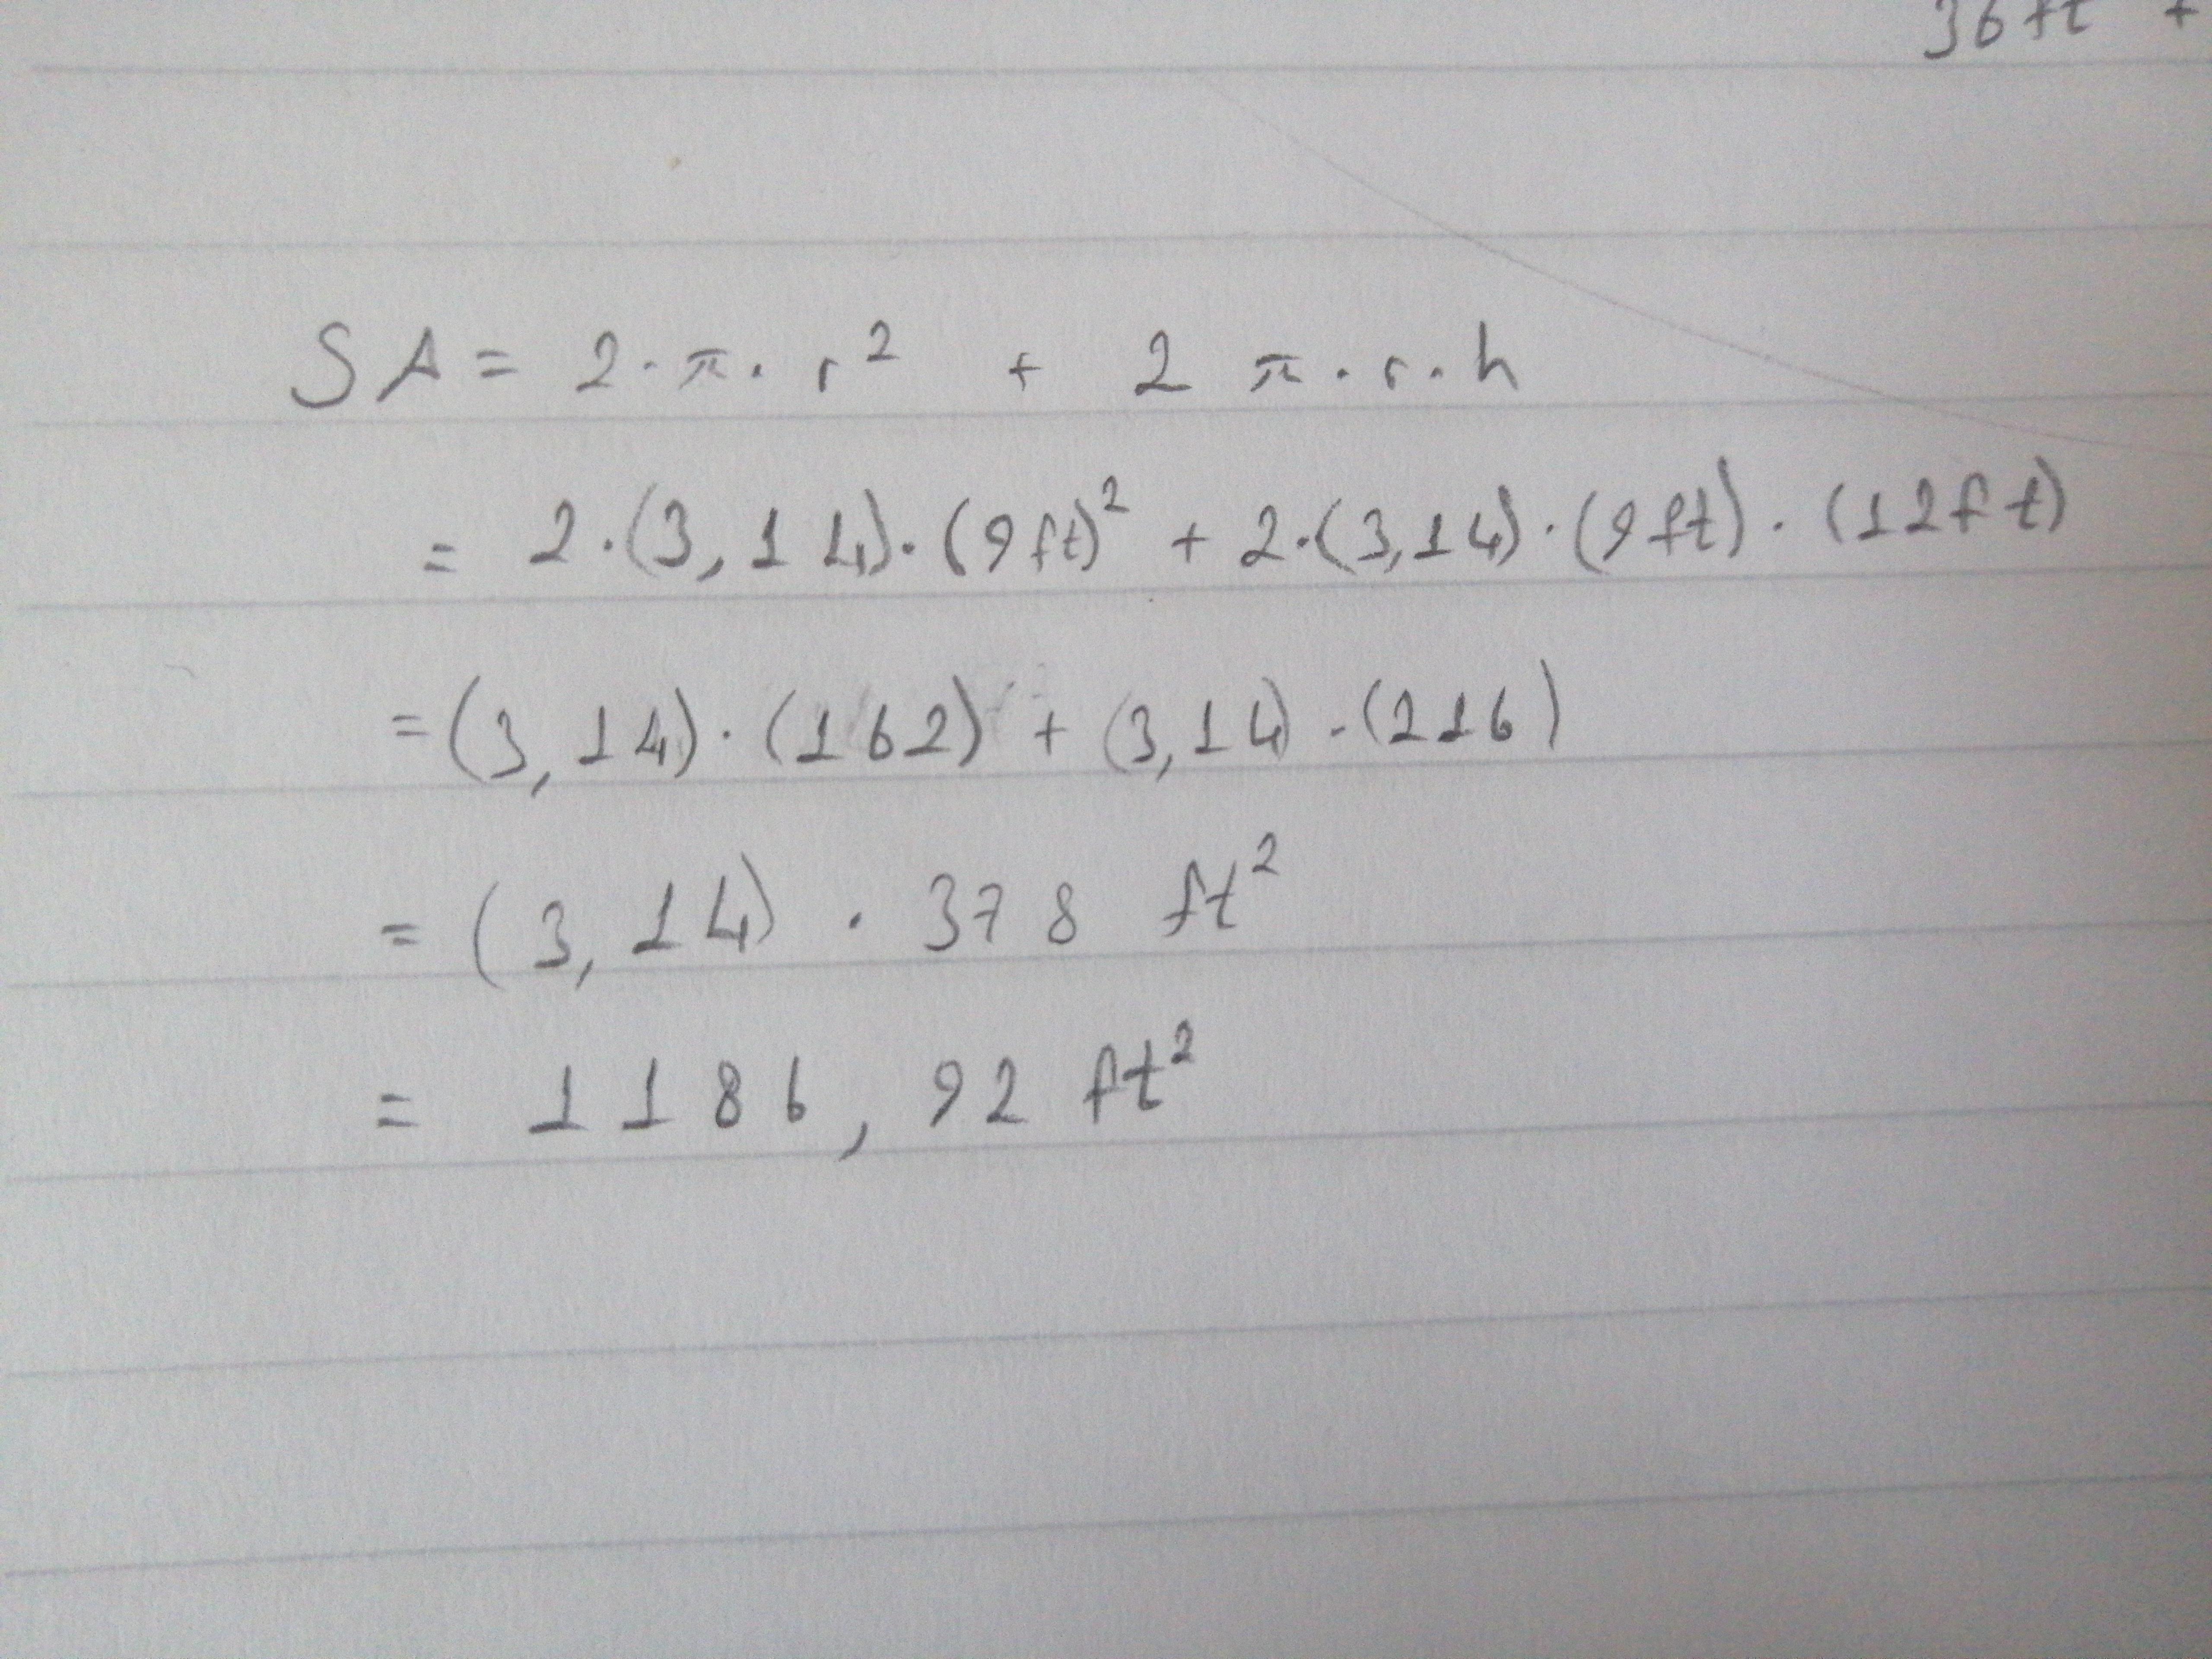 36ft +
SA = 2·π·r² + 2π·r·h
= 2·(3,14)·(9ft)² + 2·(3,14)·(9ft)·(12ft)
=(3,14)·(162) + (3,14)·(216)
= (3,14) · 378 ft²
= 1186,92 ft²